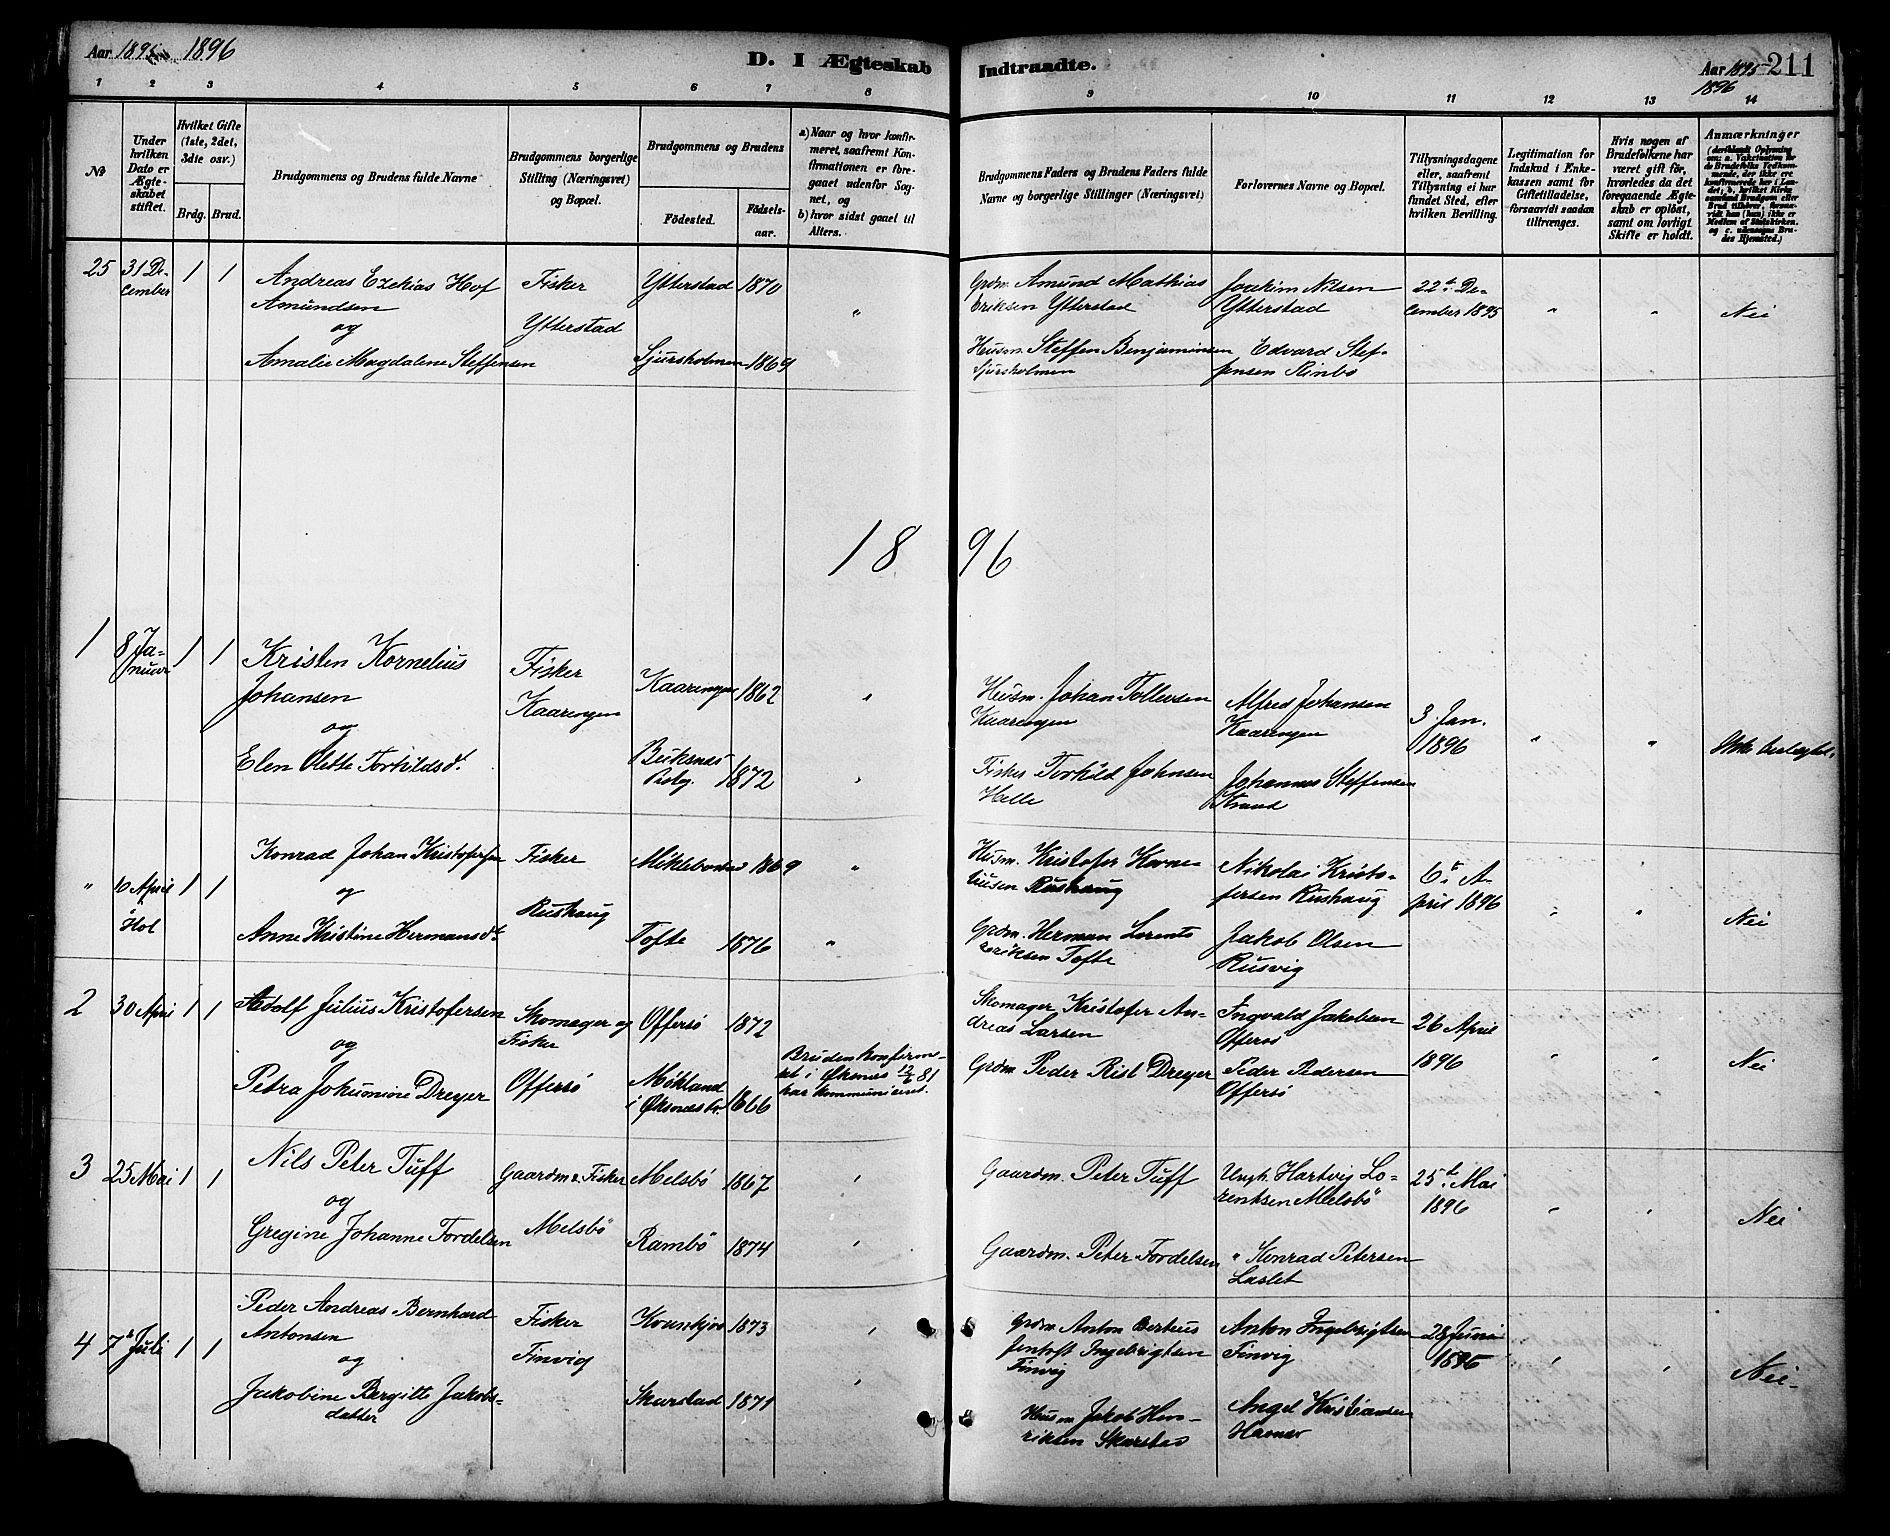 Aar 1895 1896
D. I Ægteskab Indtraadte.
Aar 1895 211
1896
1 2 3 4 5 6 7 8 9 10 11 12 13 14
No
Under hvilken Dato er Ægteskabet stiftet.
Hvilket Gifte (1ste, 2det, 3dte osv.)
Brdg. Brud.
Brudgommens og Brudens fulde Navne
Brudgommens borgerlige Stilling (Næringsvei) og Bopæl.
Brudgommens og Brudens
Födested. Födselsaar.
a) Naar og hvor konfirmeret, saafremt Konfirmationen er foregaaet udenfor Sognet, og
b) hvor sidst gaaet til Alters.
Brudgommens Faders og Brudens Faders fulde Navne og borgerlige Stillinger (Næringsvei)
Forlovernes Navne og Bopæl.
Tillysningsdagene eller, saafremt Tillysning ei har fundet Sted, efter hvilken Bevilling.
Legitimation for Indskud i Enkekassen samt for Giftetilladelse, forsaavidt saadan tiltrænges.
Hvis nogen af Brudefolkene har været gift för, hvorledes da det foregaaende Ægteskab er oplöst, samt om lovligt Skifte er holdt.
Anmærkninger
25 31 De- 1 1 Andreas Ezekias Hof Fisker Ytterstad 1870 " Grdm. Amund Mathias Joakim Nilsen 22de De-
cember Amundsen Eriksen Ytterstad Ytterstad cember 1895 " " Nei
og Ytterstad
Amalie Magdalene Steffensen Sjursholmen 1869 Husm. Steffen Benjaminsen Edvard Stef-
Sjursholmen fensen Rinbö
1896
1 8 Ja- 1 1 Kristen Kornelius Fisker Kaaringen 1862 " Husm. Johan Tollevsen Alfred Johansen 3 Jan.
nuar Johansen Kaaringen Kaaringen Kaaringen 1896 " "
og
Elen Olette Torkildsd. Buksnæs 1872 " Fisker Torkild Johnsen Johannes Steffensen
Helle Strand
" 10 April 1 1 Konrad Johan Kristofersen Fisker Miklebostad 1869 " Husm. Kristofer Korne- Nikolai Kristo- 6te A-
i Hol og Rushaug liusen Rushaug fersen Rushaug pril 1896 " " Nei
Anne Kristine Hermansdt. Tofte 1876 " Grdm. Herman Lorents Jakob Olsen
Eriksen Tofte Rusvig
2 30 April 1 1 Adolf Julius Kristofersen Skomager og Offersö 1872 Skomager Kristofer An- Ingvald Jakobsen 26 April
og Fisker dreas Larsen Offersö 1896 " " Nei
Petra Jokumine Dreyer Offersö Mökland 1866 Bruden konfirme- Grdm Peder Rist Dreyer Peder Pedersen
i Øksnæs ret i Øksnæs 12/6 81 Offersö
har kommuniceret.
3 25 Mai 1 1 Nils Peter Tuff Gaardm. & Fisker Melsbö 1867 " Gaardm. Peter Tuff Ungk. Hartvig Lo- 25de Mai
og Melsbö rentsen Melsbö 1896 " " Nei
Gregine Johanne Tordelsen Rambö 1874 " Gaardm. Peter Tordelsen " Konrad Petersen
4 7de Juli 1 1 Peder Andreas Bernhard Fisker 1873 " Grdm. Anton Berteus Anton Ingebrigtsen 28 Juni
Antonsen Finvig Jentoft Ingebrigtsen Finvig 1896 " " Nei
og Finvig
Jakobine Bergitte Jakobs- Skarstad 1871 " Husm Jakob Hen- Angel Kristiansen
datter riksen Skarstad